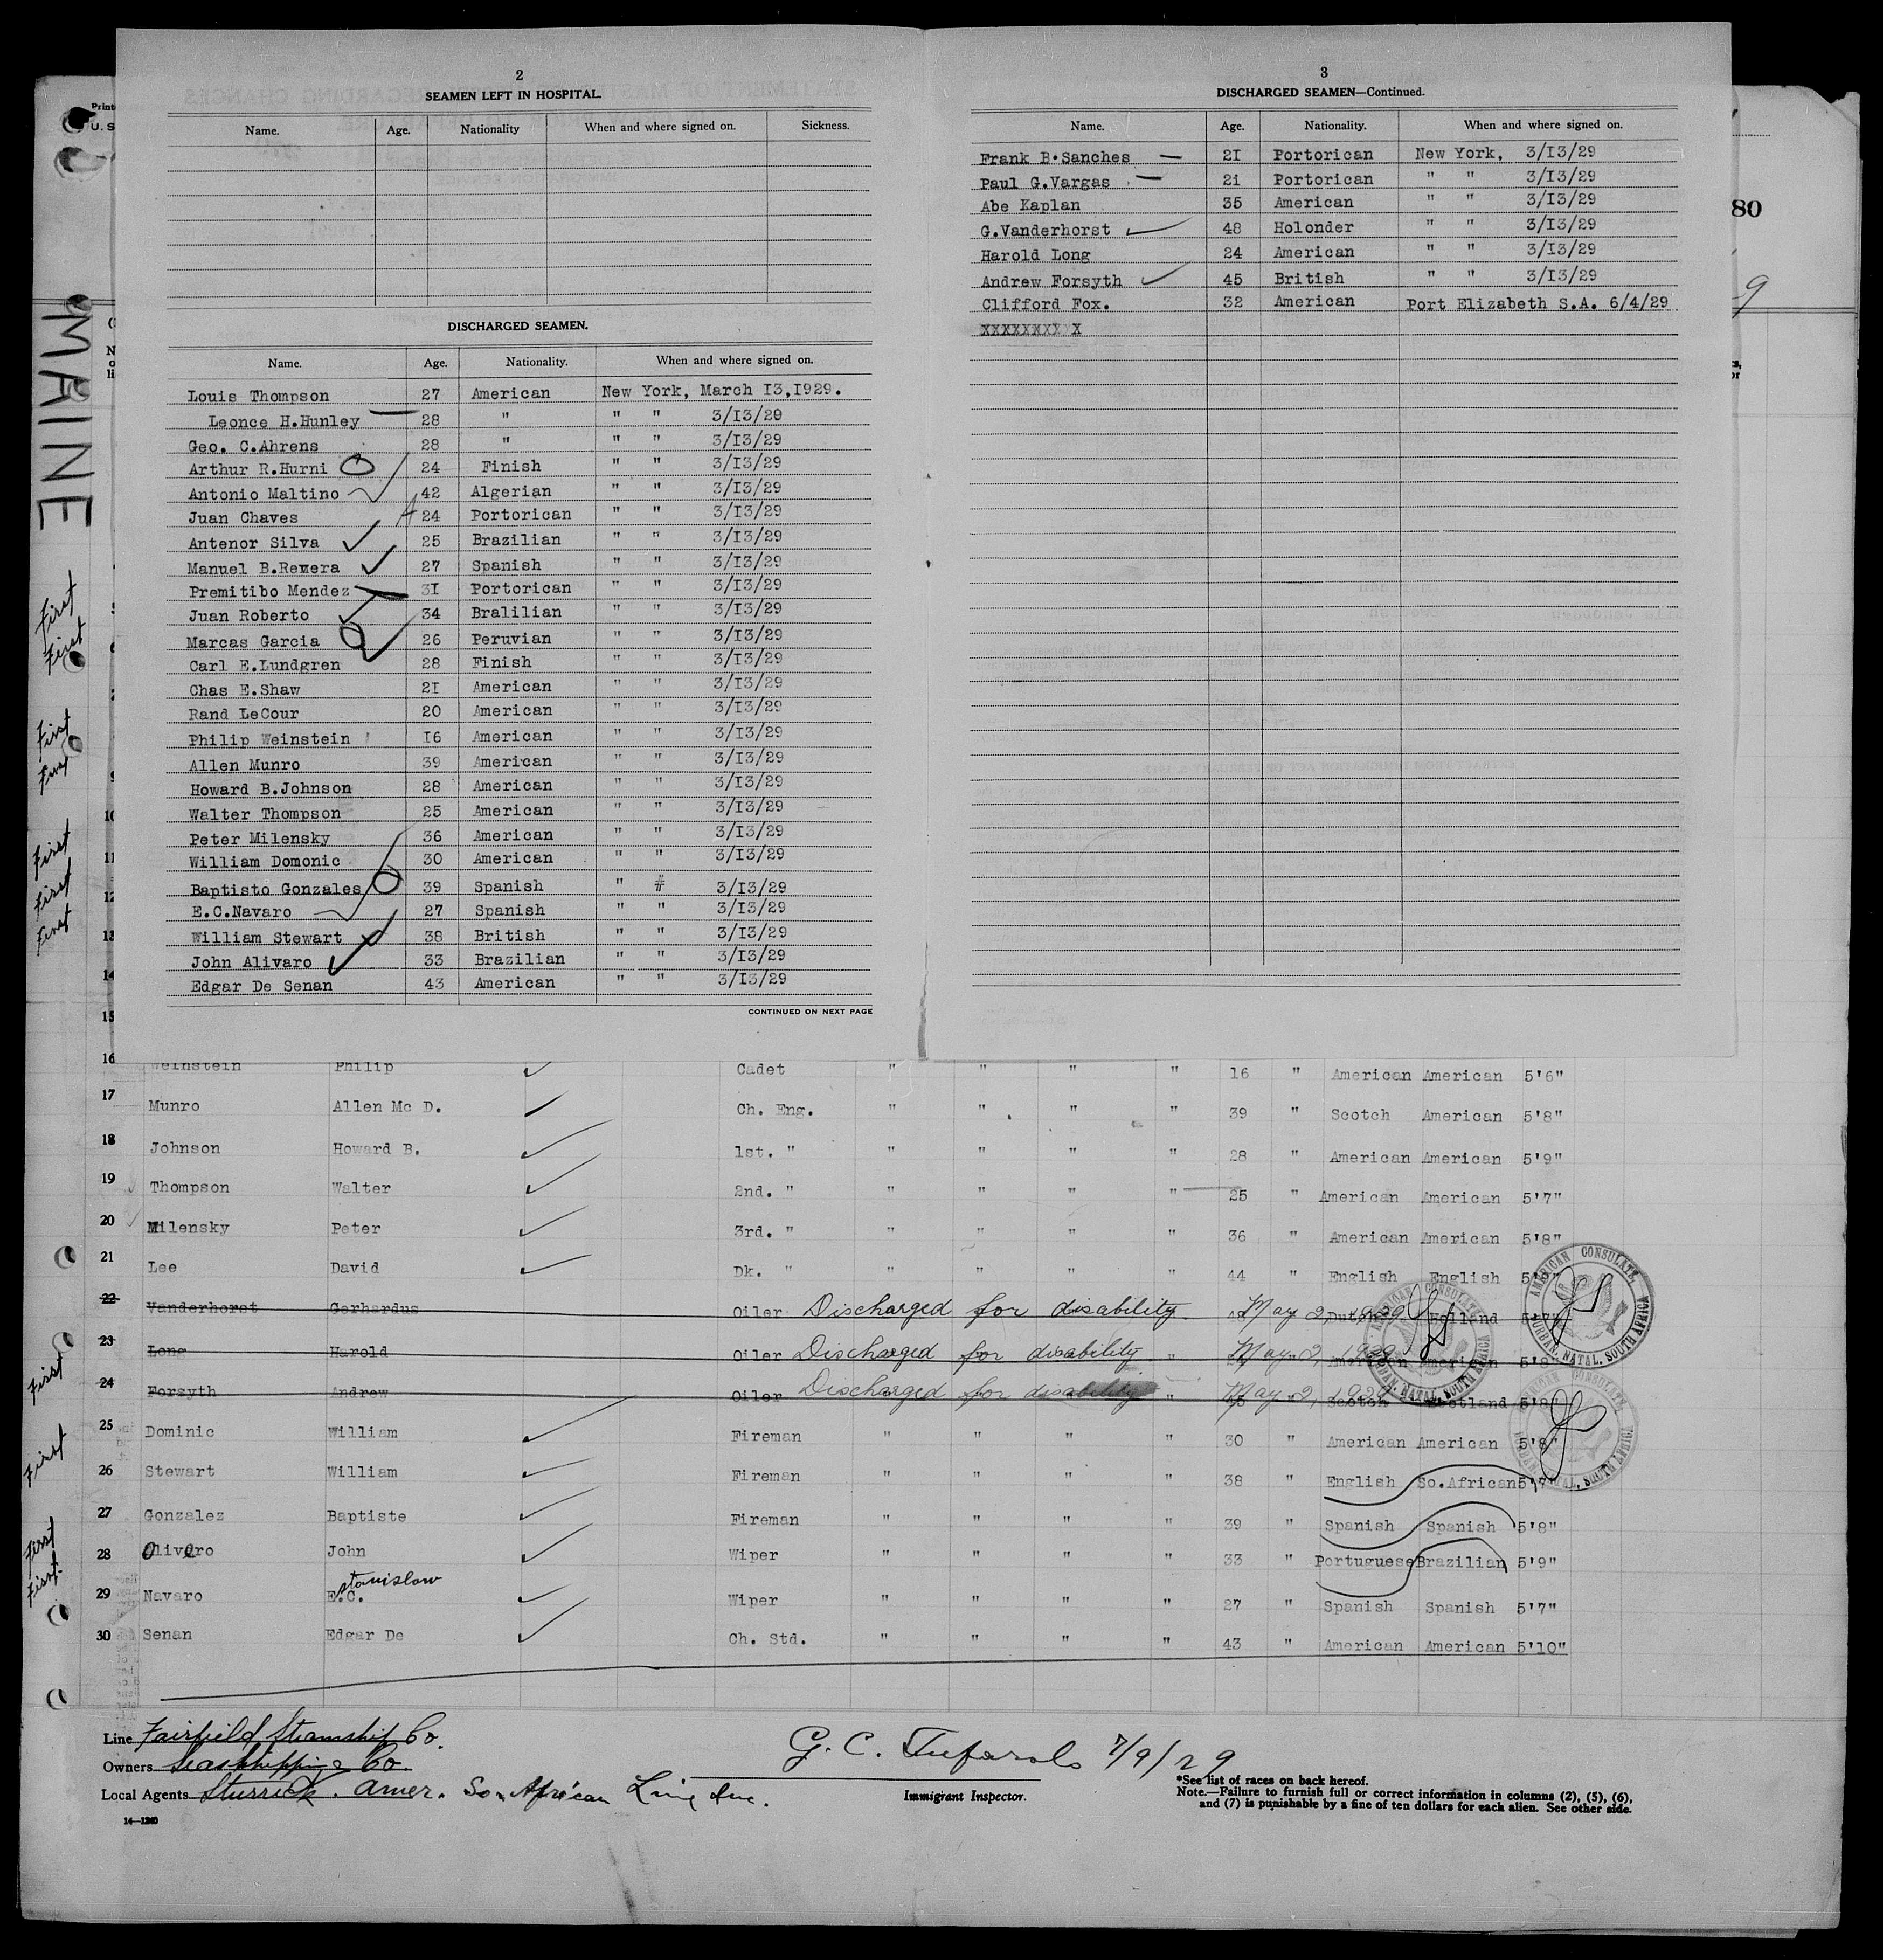 2
SEAMEN LEFT IN HOSPITAL.
Name. Age. Nationality When and where signed on. Sickness.
DISCHARGED SEAMEN.
Name. Age. Nationality. When and where signed on.
Louis Thompson 27 American New York, March I3,I929.
Leonce H.Hunley 28 " " " 3/I3/29
Geo. C.Ahrens 28 " " " 3/I3/29
Arthur R.Hurni 24 Finish " " 3/I3/29
Antonio Maltino 42 Algerian " " 3/I3/29
Juan Chaves 24 Portorican " " 3/I3/29
Antenor Silva 25 Brazilian " " 3/I3/29
Manuel B.Remera 27 Spanish " " 3/I3/29
Premitibo Mendez 3I Portorican " " 3/I3/29
Juan Roberto 34 Bralilian " " 3/I3/29
Marcas Garcia 26 Peruvian " " 3/I3/29
Carl E.Lundgren 28 Finish " " 3/I3/29
Chas E.Shaw 2I American " " 3/I3/29
Rand LeCour 20 American " " 3/I3/29
Philip Weinstein I6 American " " 3/I3/29
Allen Munro 39 American " " 3/I3/29
Howard B.Johnson 28 American " " 3/I3/29
Walter Thompson 25 American " " 3/I3/29
Peter Milensky 36 American " " 3/I3/29
William Domonic 30 American " " 3/I3/29
Baptisto Gonzales 39 Spanish " # 3/I3/29
E.C.Navaro 27 Spanish " " 3/I3/29
William Stewart 38 British " " 3/I3/29
John Alivaro 33 Brazilian " " 3/I3/29
Edgar De Senan 43 American " " 3/I3/29
CONTINUED ON NEXT PAGE
3
DISCHARGED SEAMEN—Continued.
Name. Age. Nationality. When and where signed on.
Frank B.Sanches — 2I Portorican New York, 3/I3/29
Paul G.Vargas — 2i Portorican " " 3/I3/29
Abe Kaplan 35 American " " 3/I3/29
G.Vanderhorst 48 Holonder " " 3/I3/29
Harold Long 24 American " " 3/I3/29
Andrew Forsyth 45 British " " 3/I3/29
Clifford Fox. 32 American Port Elizabeth S.A. 6/4/29
XXXXXXXXX X
80
9
MAINE
First
First
First
First
First
First
First
First
First
First
First
10
11
12
13
14
15
16 Weinstein Philip Cadet " " " " 16 " American American 5'6"
17 Munro Allen Mc D. Ch. Eng. " " " " 39 " Scotch American 5'8"
18 Johnson Howard B. 1st. " " " " " 28 " American American 5'9"
19 Thompson Walter 2nd. " " " " " 25 " American American 5'7"
20 Milensky Peter 3rd. " " " " " 36 " American American 5'8"
21 Lee David Dk. " " " " " 44 " English English 5'6"
22 Vanderhorst Gerhardus Oiler Discharged for disability May 2, 1929 Dutch Holland 5'7"
23 Long Harold Oiler Discharged for disability " May 2, 1929 American American 5'8"
24 Forsyth Andrew Oiler Discharged for disability " May 2, 1929 Scotch Scotland 5'8"
25 Dominic William Fireman " " " " 30 " American American 5'8"
26 Stewart William Fireman " " " " 38 " English So.African 5'7"
27 Gonzalez Baptiste Fireman " " " " 39 " Spanish Spanish 5'8"
28 Olivero John Wiper " " " " 33 " Portuguese Brazilian 5'9"
stanislow
29 Navaro E.C. Wiper " " " " 27 " Spanish Spanish 5'7"
30 Senan Edgar De Ch. Std. " " " " 43 " American American 5'10"
AMERICAN CONSULATE, DURBAN, NATAL, SOUTH AFRICA
AMERICAN CONSULATE, DURBAN, NATAL, SOUTH AFRICA
AMERICAN CONSULATE, DURBAN, NATAL, SOUTH AFRICA
Line Fairfield Steamship Co.
Owners Seas Shipping Co
Local Agents Sturrick. Amer. So. African Line Inc.
14—1240
G. C. 7/9/29
Immigrant Inspector.
*See list of races on back hereof.
Note.—Failure to furnish full or correct information in columns (2), (5), (6),
and (7) is punishable by a fine of ten dollars for each alien. See other side.